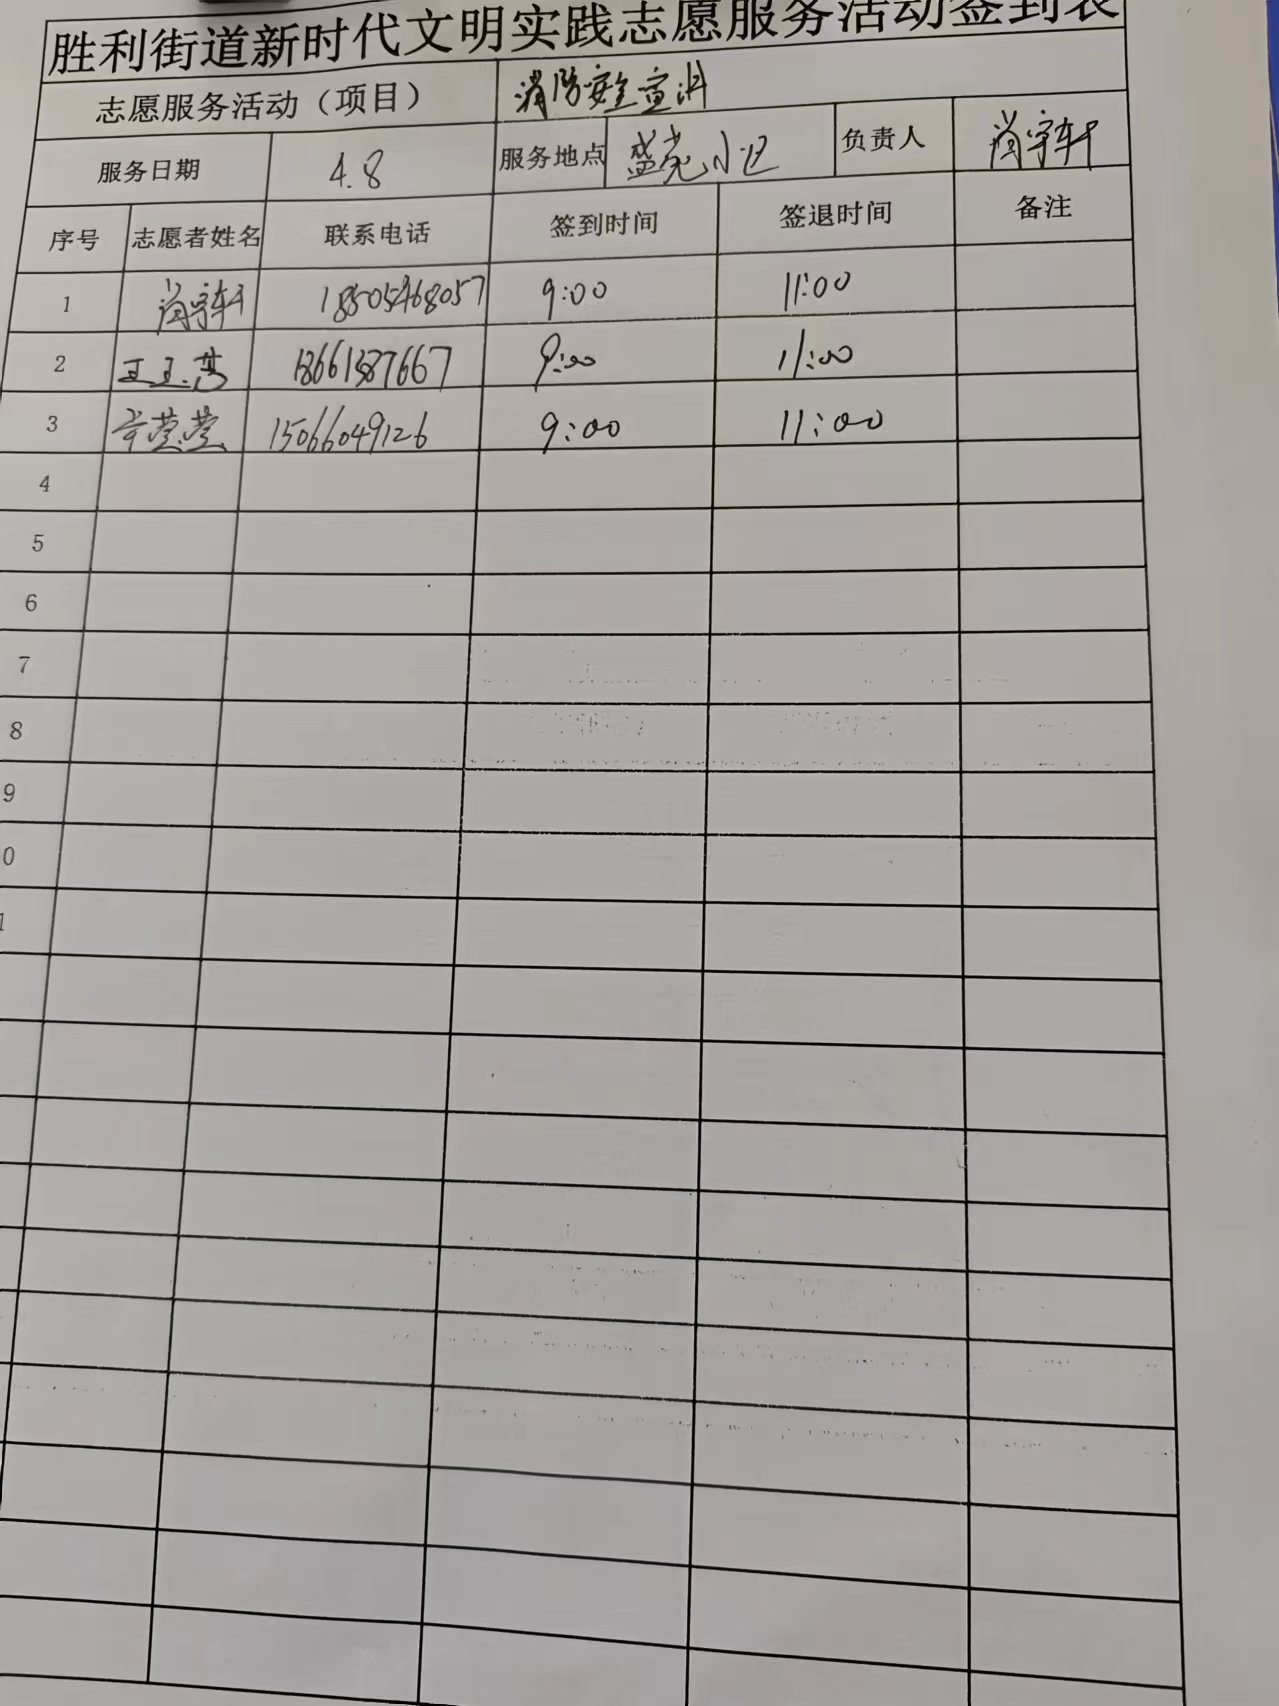 胜利街道新时代文明实践志愿服务活动签到表
志愿服务活动（项目） 消防安全宣讲
服务日期 4.8 服务地点 盛尧小区 负责人 肖宇轩
序号 志愿者姓名 联系电话 签到时间 签退时间 备注
1 肖宇轩 18505468057 9:00 11:00
2 王玉 9:00 11:00
3 莹莹 15066049126 9:00 11:00
4
5
6
7
8
9
0
1